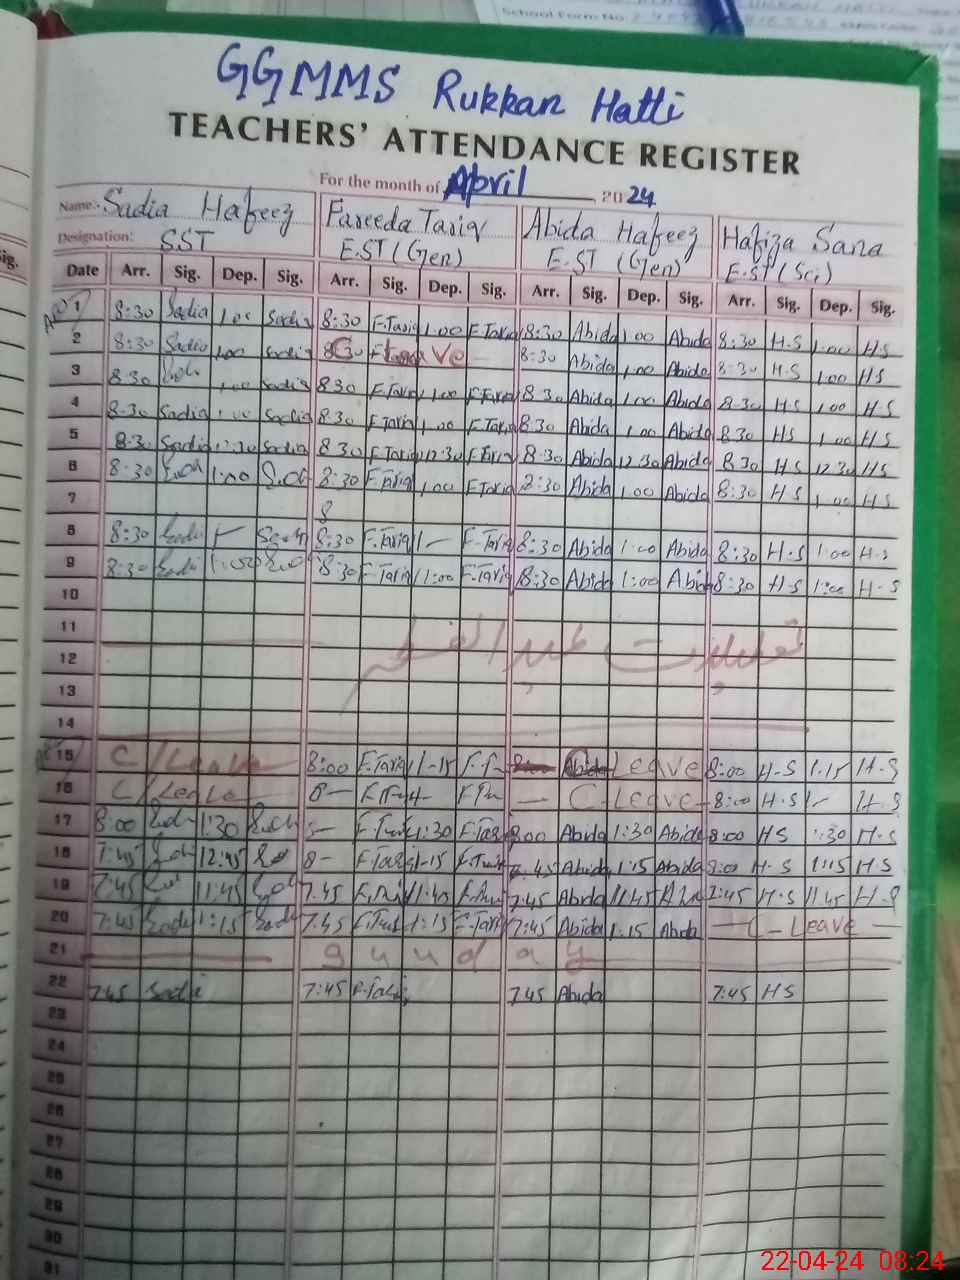 School Form No.
GGMMS Rukkan Hatti
TEACHERS' ATTENDANCE REGISTER
For the month of April 2024
Name:- Sadia Hafeez Fareeda Tariq Abida Hafeez Hafiza Sana
Designation: SST E.ST (Gen) E.ST (Gen) E.ST (Sci)
Date Arr. Sig. Dep. Sig. Arr. Sig. Dep. Sig. Arr. Sig. Dep. Sig. Arr. Sig. Dep. Sig.
1 8:30 Sadia 1.00 Sadia 8:30 F.Tariq 1.00 F.Tariq 8:30 Abida 1.00 Abida 8:30 H.S 1.00 HS
2 8:30 Sadia 1.00 Sadia 8:30 Abida 1.00 Abida 8:30 H.S 1.00 HS
3 8.30 1.00 Sadia 8.30 F.Tariq 1.00 F.Tariq 8.30 Abida 1.00 Abida 8.30 H.S 1.00 H S
4 8.30 Sadia 1.00 Sadia 8.30 F.Tariq 1.00 F.Tariq 8.30 Abida 1.00 Abida 8.30 HS 1.00 H S
5 8.30 Sadia 12.30 Sadia 8.30 F.Tariq 12.30 F.Tariq 8.30 Abida 12.30 Abida 8.30 H S 12.30 HS
6 8:30 1:00 8:30 F.Tariq 1.00 F.Tariq 8:30 Abida 1.00 Abida 8:30 H.S 1.00 HS
7 8
8 8:30 8:30 F.Tariq 1 — F.Tariq 8:30 Abida 1:00 Abida 8:30 H.S 1:00 H.S
9 8:30 1:00 8:30 F.Tariq 1:00 F.Tariq 8:30 Abida 1:00 Abida 8:30 H.S 1:00 H-S
10
11
12 تعطیلات عید الفطر
13
14
15 C/Leave 8:00 F.Tariq 1-15 C Leave 8:00 H-S 1.15 H-S
16 C/Leave 8— — C-Leave — 8:00 H.S 1/- H.S
17 8:00 1:30 1:30 8:00 Abida 1:30 Abida 8:00 HS 1:30 H-S
18 7:45 12:45 8- F.Tariq 1-15 7.45 Abida 1:15 Abida 8:00 H-S 1:15 H S
19 7:45 11:45 7.45 11:45 7:45 Abida 11.45 7:45 H.S 11.45 H-S
20 7:45 1:15 7.45 1:15 F.Tariq 7:45 Abida 1.15 Abida — C-Leave —
21 Sunday
22 7.45 Sadi 7:45 F.Tariq 7.45 Abida 7:45 HS
23
24
25
26
27
28
29
30
31
22-04-24 08:24